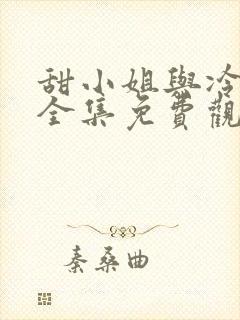 甜小姐與冷
全集免費觀
秦桑曲